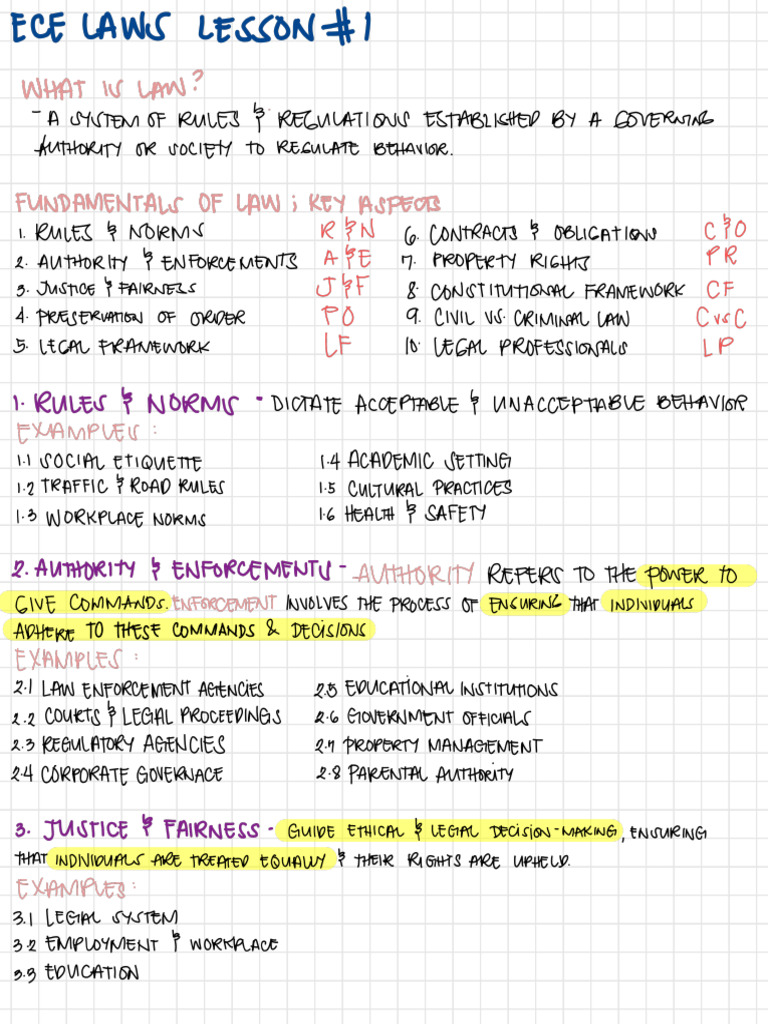 ECE LAWS LESSON #1
WHAT IS LAW?
- A SYSTEM OF RULES & REGULATIONS ESTABLISHED BY A GOVERNING
AUTHORITY OR SOCIETY TO REGULATE BEHAVIOR.
FUNDAMENTALS OF LAW ; KEY ASPECTS
1. RULES & NORMS R & N
2. AUTHORITY & ENFORCEMENTS A & E
3. JUSTICE & FAIRNESS J & F
4. PRESERVATION OF ORDER PO
5. LEGAL FRAMEWORK LF
6. CONTRACTS & OBLIGATION C & O
7. PROPERTY RIGHTS PR
8. CONSTITUTIONAL FRAMEWORK CF
9. CIVIL VS. CRIMINAL LAW C vs C
10. LEGAL PROFESSIONALS LP
1. RULES & NORMS - DICTATE ACCEPTABLE & UNACCEPTABLE BEHAVIOR
EXAMPLES :
1.1 SOCIAL ETIQUETTE
1.2 TRAFFIC & ROAD RULES
1.3 WORKPLACE NORMS
1.4 ACADEMIC SETTING
1.5 CULTURAL PRACTICES
1.6 HEALTH & SAFETY
2. AUTHORITY & ENFORCEMENTS - AUTHORITY REFERS TO THE POWER TO
GIVE COMMANDS. ENFORCEMENT INVOLVES THE PROCESS OF ENSURING THAT INDIVIDUALS
ADHERE TO THESE COMMANDS & DECISIONS
EXAMPLES :
2.1 LAW ENFORCEMENT AGENCIES
2.2 COURTS & LEGAL PROCEEDINGS
2.3 REGULATORY AGENCIES
2.4 CORPORATE GOVERNACE
2.5 EDUCATIONAL INSTITUTIONS
2.6 GOVERNMENT OFFICIALS
2.7 PROPERTY MANAGEMENT
2.8 PARENTAL AUTHORITY
3. JUSTICE & FAIRNESS - GUIDE ETHICAL & LEGAL DECISION-MAKING, ENSURING
THAT INDIVIDUALS ARE TREATED EQUALLY & THEIR RIGHTS ARE UPHELD.
EXAMPLES :
3.1 LEGAL SYSTEM
3.2 EMPLOYMENT & WORKPLACE
3.3 EDUCATION